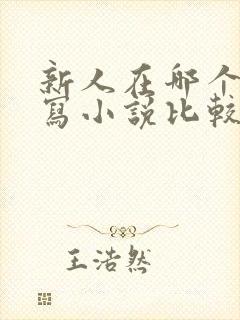 新人在哪个
寫小說比較
王浩然